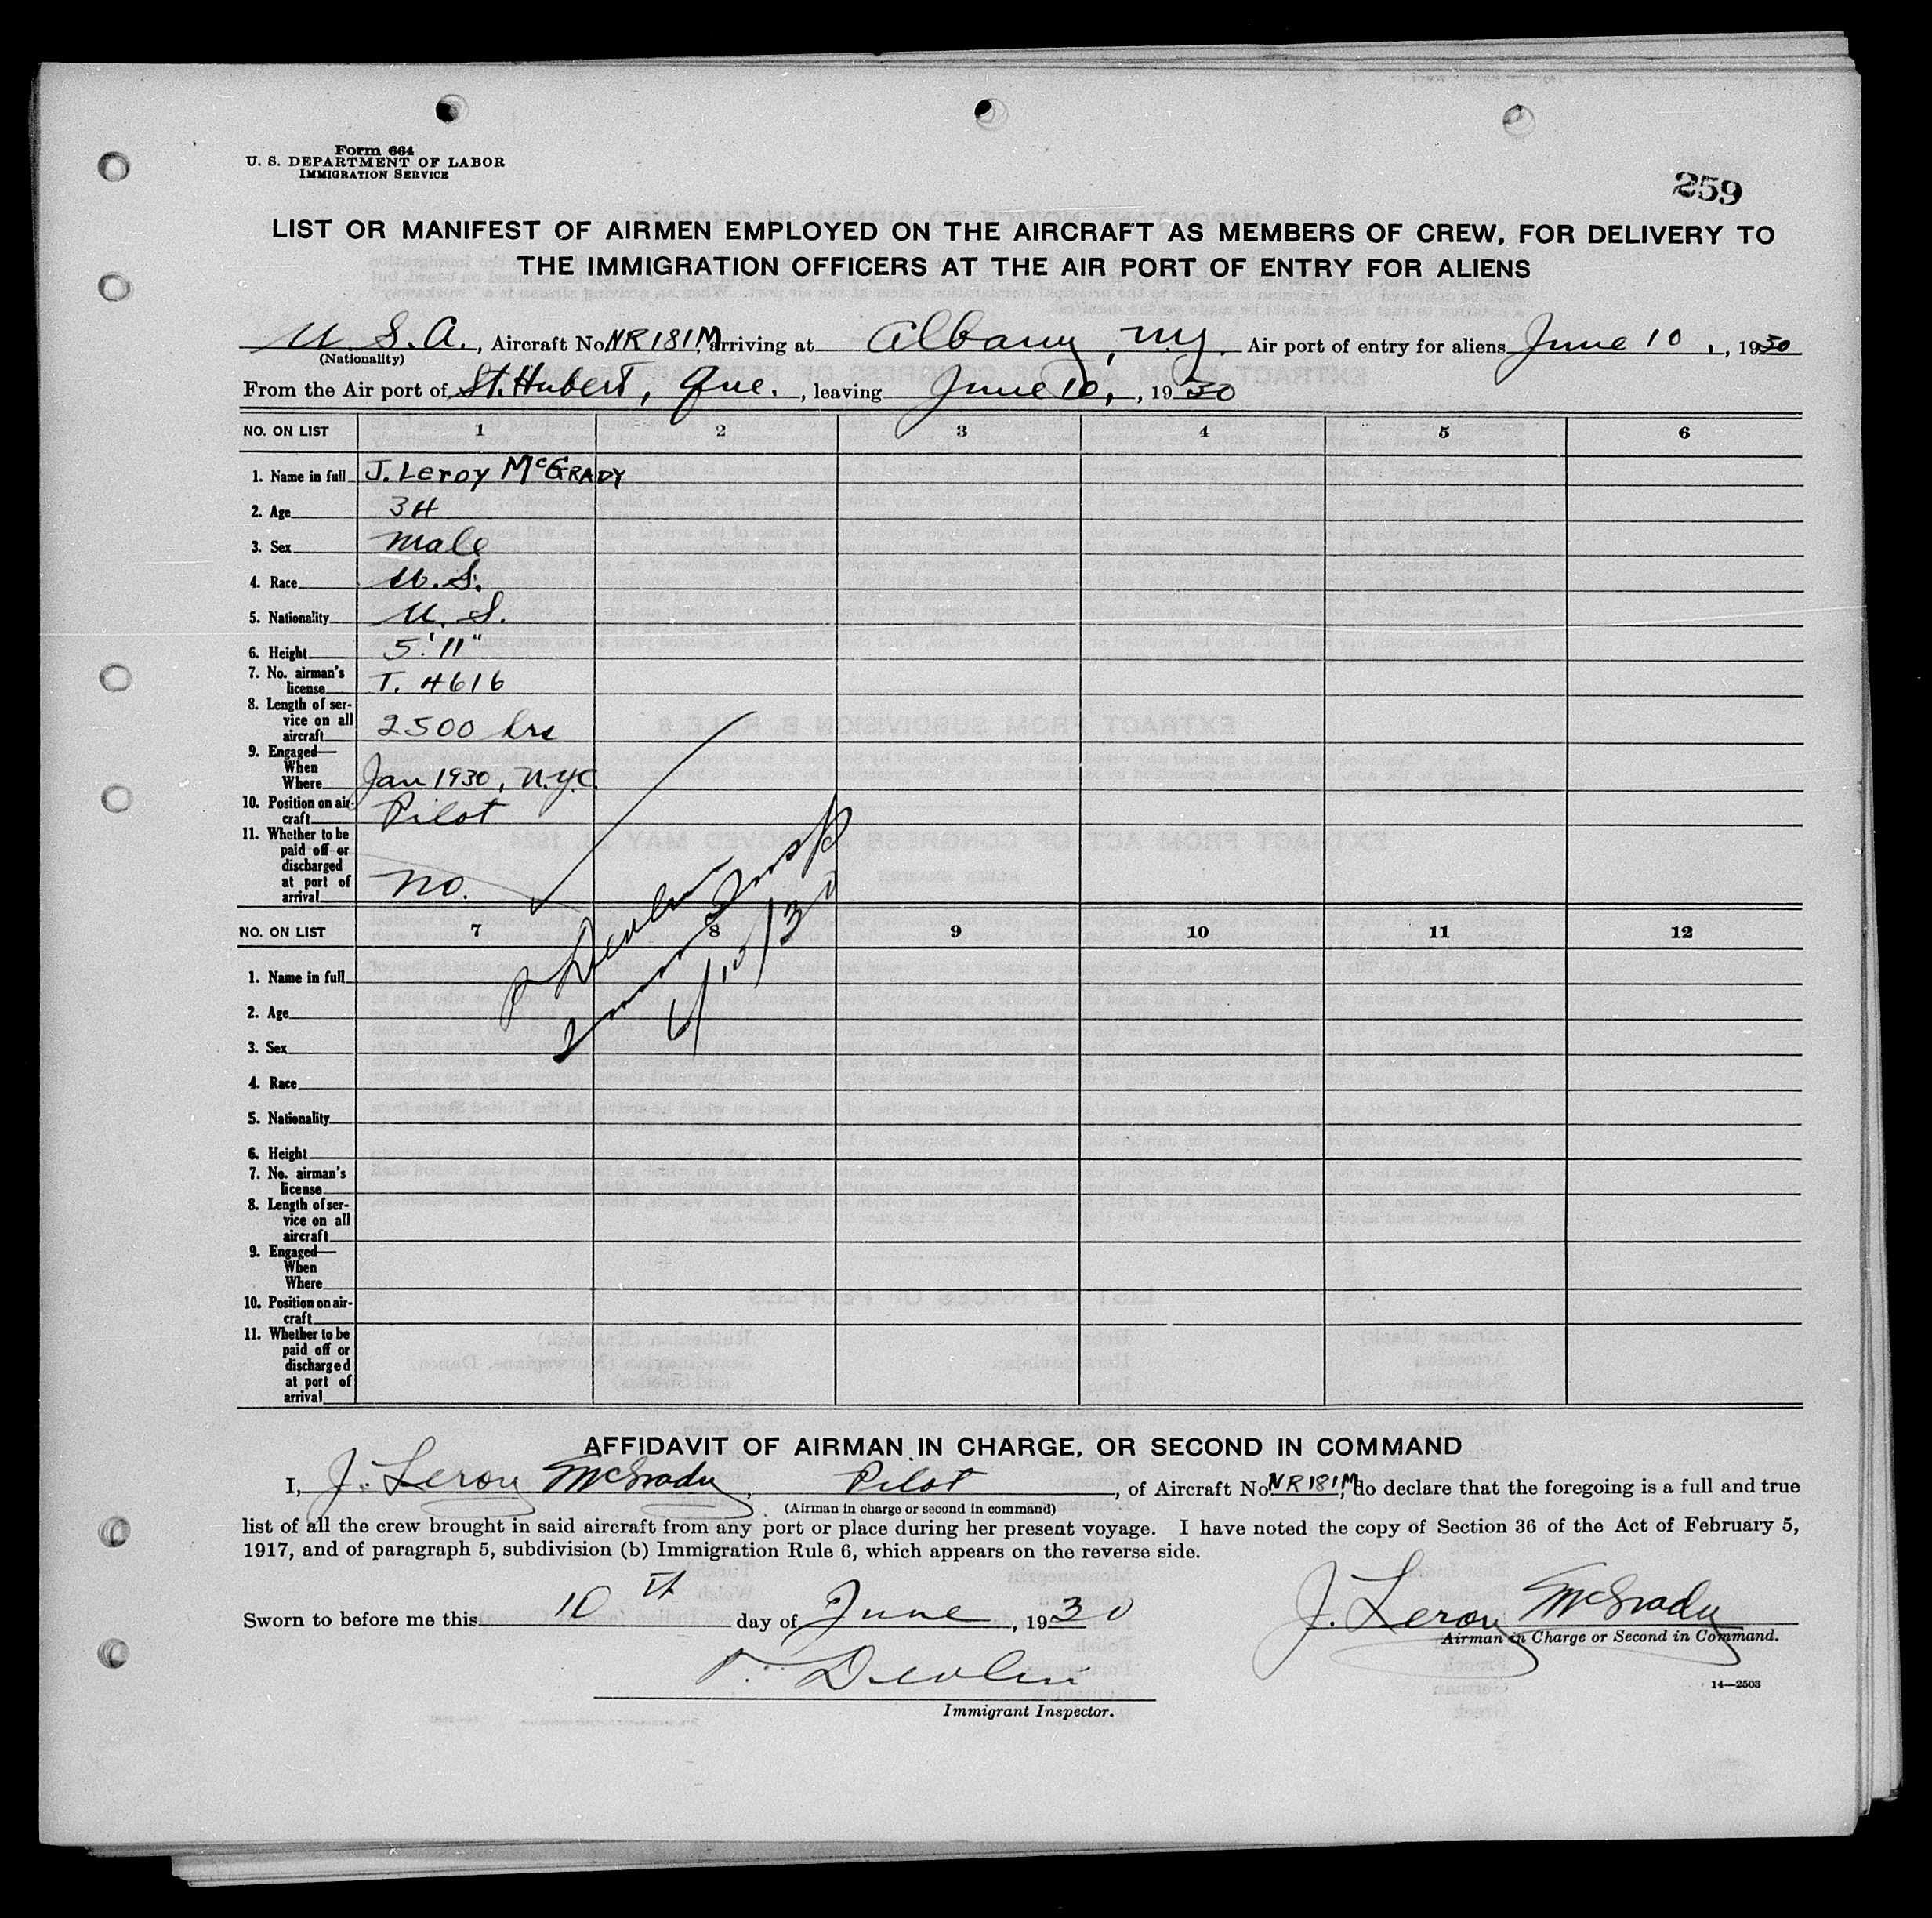 Form 664
U. S. DEPARTMENT OF LABOR
IMMIGRATION SERVICE
259
LIST OR MANIFEST OF AIRMEN EMPLOYED ON THE AIRCRAFT AS MEMBERS OF CREW, FOR DELIVERY TO
THE IMMIGRATION OFFICERS AT THE AIR PORT OF ENTRY FOR ALIENS
U. S. A., Aircraft No. NR181M, arriving at Albany, N.Y. Air port of entry for aliens June 10, , 1930
(Nationality)
From the Air port of St. Hubert, Que. , leaving June 10, , 1930
NO. ON LIST 1 2 3 4 5 6
1. Name in full J. Leroy McGRADY
2. Age 34
3. Sex Male
4. Race U. S.
5. Nationality U. S.
6. Height 5' 11"
7. No. airman's
license T. 4616
8. Length of ser-
vice on all
aircraft 2500 hrs
9. Engaged—
When
Where Jan 1930, N.Y.C.
10. Position on air-
craft Pilot
11. Whether to be
paid off or
discharged
at port of
arrival No.
Devlin
Immig Insp
6/10/30
NO. ON LIST 7 8 9 10 11 12
1. Name in full
2. Age
3. Sex
4. Race
5. Nationality
6. Height
7. No. airman's
license
8. Length of ser-
vice on all
aircraft
9. Engaged—
When
Where
10. Position on air-
craft
11. Whether to be
paid off or
discharged
at port of
arrival
AFFIDAVIT OF AIRMAN IN CHARGE, OR SECOND IN COMMAND
I, J. Leroy McGrady, Pilot, of Aircraft No. NR181M, do declare that the foregoing is a full and true
(Airman in charge or second in command)
list of all the crew brought in said aircraft from any port or place during her present voyage. I have noted the copy of Section 36 of the Act of February 5,
1917, and of paragraph 5, subdivision (b) Immigration Rule 6, which appears on the reverse side.
Sworn to before me this 10th day of June, 1930
J. Leroy McGrady
Airman in Charge or Second in Command.
Devlin
14—2503
Immigrant Inspector.